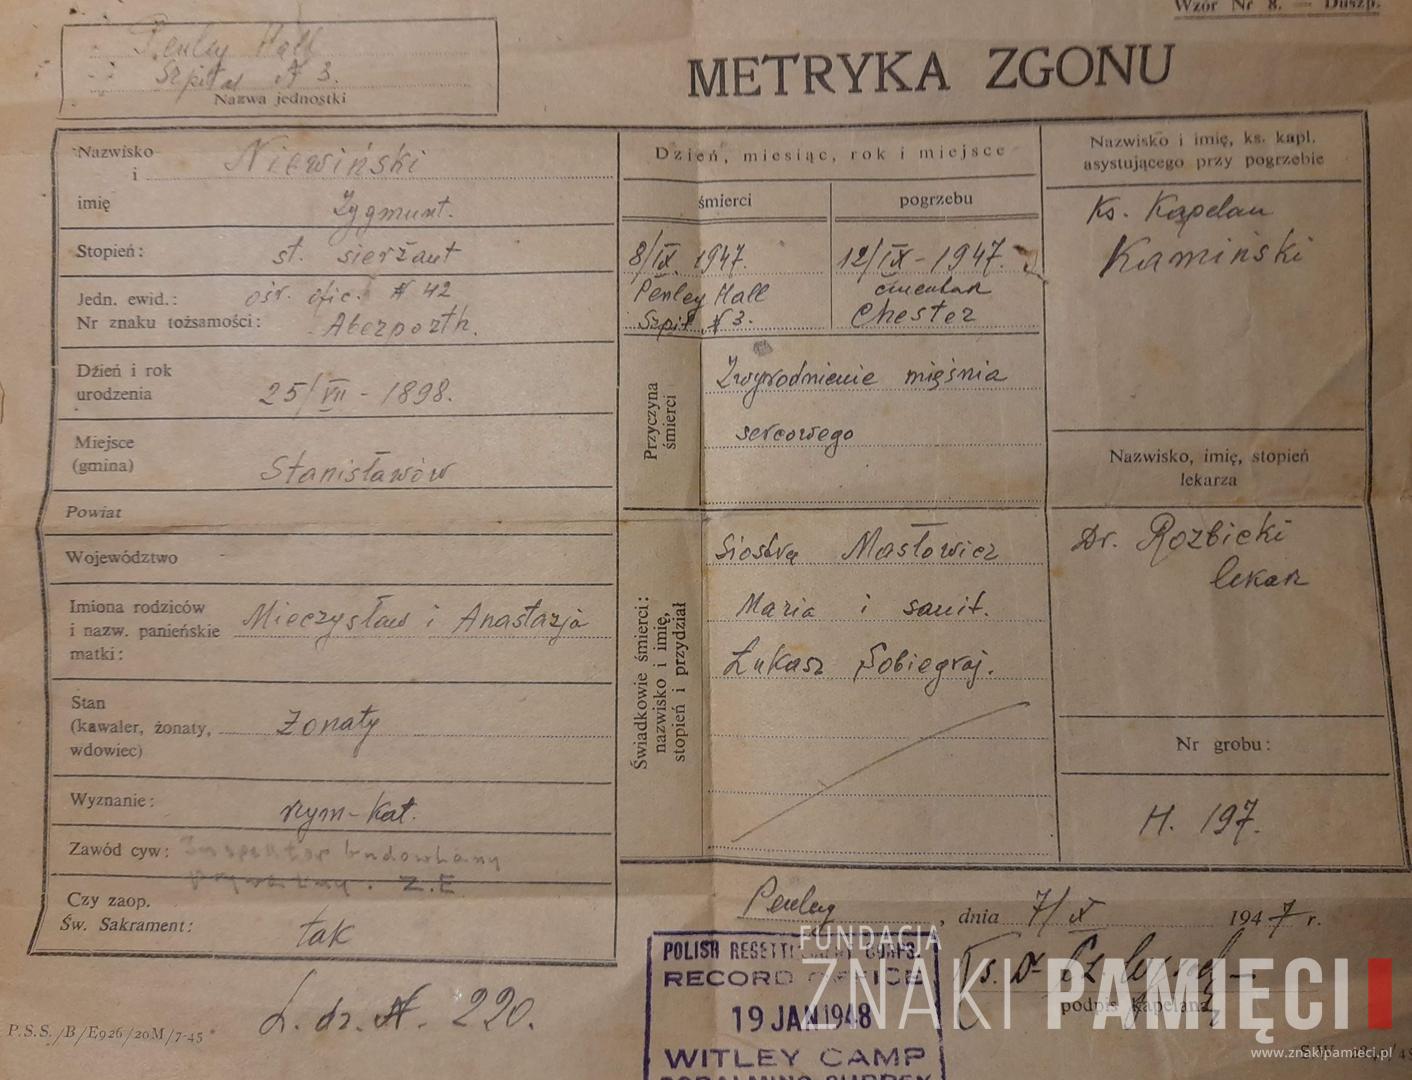 Wzór Nr 8. — Duszp.
Penley Hall
Szpital № 3.
Nazwa jednostki
METRYKA ZGONU
Nazwisko
i
Niewiński
imię
Zygmunt.
Stopień:
st. sierżant
Jedn. ewid.:
ośr. ofic. № 42
Nr znaku tożsamości:
Aberporth.
Dzień i rok
urodzenia
25/VII - 1898.
Miejsce
(gmina)
Stanisławów
Powiat
Województwo
Imiona rodziców
i nazw. panieńskie
matki:
Mieczysław i Anastazja
Stan
(kawaler, żonaty,
wdowiec)
Żonaty
Wyznanie:
rzym-kat.
Zawód cyw:
Inspektor budowlany
Z.E
Czy zaop.
Św. Sakrament:
tak
Dzień, miesiąc, rok i miejsce
śmierci
pogrzebu
8/IX. 1947.
Penley Hall
Szpit. № 3.
12/IX - 1947.
cmentarz
Chester
Przyczyna
śmierci
Zwyrodnienie mięśnia
sercowego
Świadkowie śmierci:
nazwisko i imię,
stopień i przydział
Siostra Masłowicz
Maria i sanit.
Łukasz Sobiegraj.
Nazwisko i imię, ks. kapl.
asystującego przy pogrzebie
Ks. Kapelan
Kamiński
Nazwisko, imię, stopień
lekarza
Dr. Rozbicki
lekarz
Nr grobu:
H. 197.
Penley, dnia 7/X 1947 r.
podpis Kapelana
POLISH RESETTLEMENT CORPS.
RECORD OFFICE
19 JAN 1948
WITLEY CAMP
GODALMING SURREY
L. dz. №. 220.
P.S.S./B/E926/20M/7-45
FUNDACJA
ZNAKI PAMIĘCI
www.znakipamieci.pl